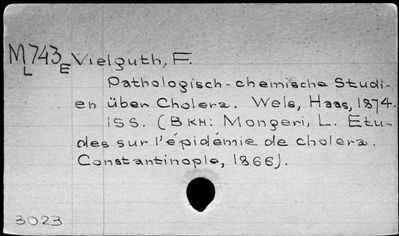 M743 Vielguth, F.
L E
Pathologisch-chemische Studi-
en über Cholera. Wels, Haas, 1874.
15 S. (BKH: Mongeri, L. Etu-
des sur l'épidémie de cholera.
Constantinople, 1866).
3023